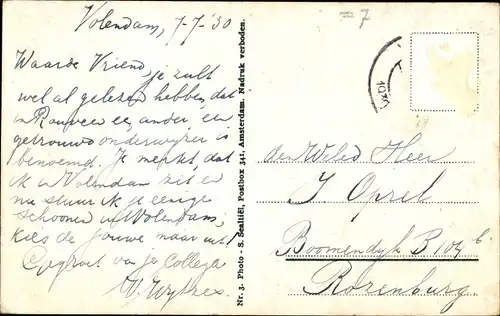 Volendam, 7-7-'30
Waarde Vriend, je zult
wel al gelezen hebben, dat
in een ander een
getrouwd onderwijzer is
benoemd. Je merkt, dat
ik in Volendam zit en
nu stuur ik je eenige
schoonen uit Volendam,
kies de jouwe maar uit!
Gegroet van je Collega
Nr. 3. Photo - S. Sealtiël, Postbox 341. Amsterdam. Nadruk verboden.
= 7
den WelEd. Heer
J Oprel
Boomendijk B 104 b
Rozenburg.